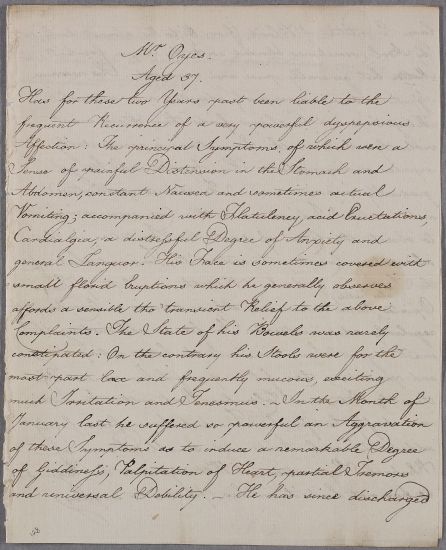 Mr. Oyes.
Aged 37.
Has for those two Years past been liable to the
frequent Recurrence of a very powerful dyspepsious
Affection: The principal Symptoms, of which were a
Sense of painful Distension in the Stomach and
Abdomen, constant Nausea and sometimes actual
Vomiting; accompanied with Flatulency, acid Eructations,
Cardialgia, a distressful Degree of Anxiety and
general Languor. His Face is sometimes covered with
small florid Eruptions which he generally observes
affords a sensible tho transient Relief to the above
Complaints. The State of his Bowels was rarely
constipated: On the contrary his Stools were for the
most part lax and frequently mucous, exciting
much Irritation and Tenesmus. - In the Month of
January last he suffered so powerful an Aggravation
of these Symptoms as to induce a remarkable Degree
of Giddiness, Palpitation of Heart, partial Tremors
and universal Debility. - He has since discharged